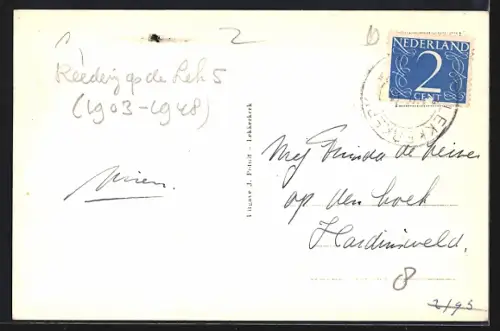 2
Reederij op de Lek 5
(1903-1948)
Uitgave J. Potuit - Lekkerkerk
NEDERLAND
2
CENT
LEKKERKERK
Mej
de
op den hoek
Hardinxveld.
8
2/95